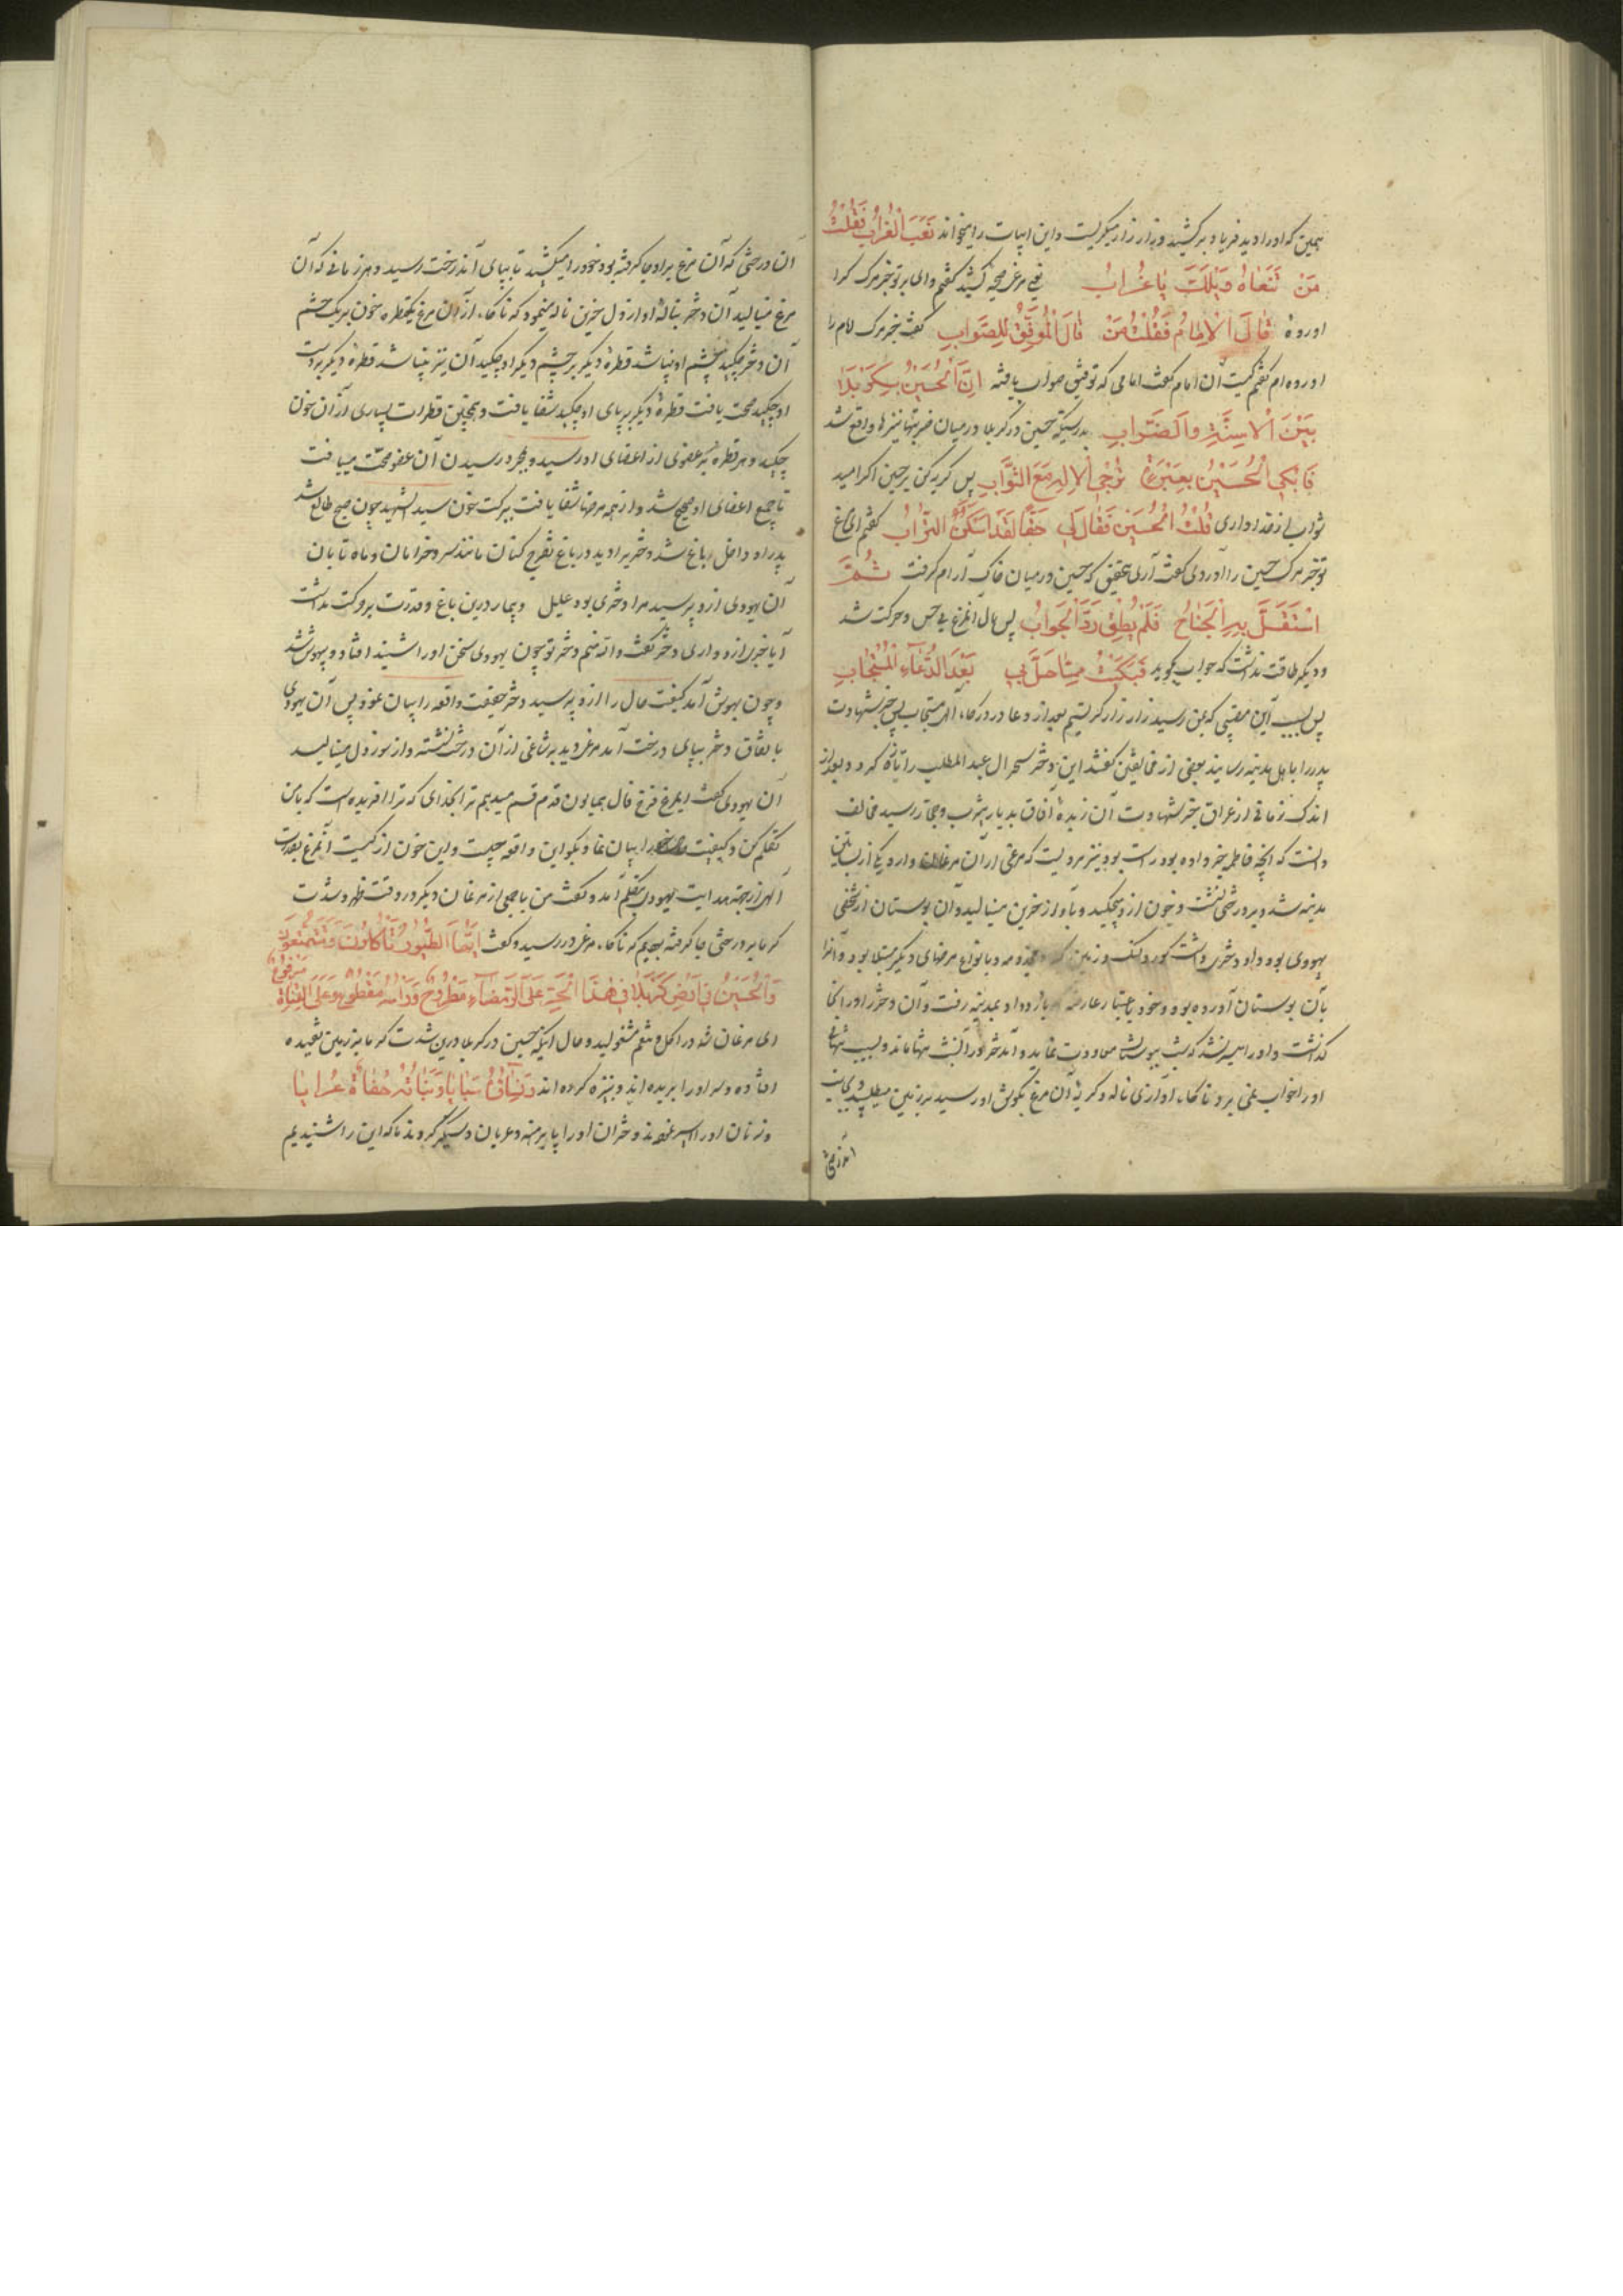 همین که او را دید فریاد برکشید و زار زار میکریست و این ابیات را میخواند نَعَبَ الْغُرَابُ فَقُلْتُ
مَنْ تَنْعَاهُ وَيْلَكَ يَا غُرَابُ یعنی مرغی صیحه کشید کفتم وای بر تو خبر مرک که را
اورده قَالَ الْاِمَامُ فَقُلْتُ مَنْ قَالَ الْمُوَفَّقُ لِلصَّوَابِ کفت خبر مرک امام را
اورده ام کفتم کیست آن امام کفت امامی که توفیق صواب یافته اِنَّ الْحُسَيْنَ بِكَرْبَلَا
بَيْنَ الْاَسِنَّةِ وَالضِّرَابِ بدرستیکه حسین در کربلا در میان ضربتها نیزها واقع شد
فَابْكِي الْحُسَيْنَ بِعَبْرَةٍ تُرْجِي الْاِلٰهَ مَعَ الثَّوَابِ پس کریه کن بر حسین اکر امید
ثواب از خدا داری قُلْتُ الْحُسَيْنُ فَقَالَ لِي حَقًّا لَقَدْ سَكَنَ التُّرَابَ کفتم ای مرغ
تو خبر مرک حسین را آوردی کفت آری بتحقیق که حسین در میان خاک آرام کرفت ثُمَّ
اسْتَقَلَّ بِهِ الْجَنَاحُ فَلَمْ يُطِقْ رَدَّ الْجَوَابِ پس بال آنمرغ بی حس و حرکت شد
و دیکر طاقت نداشت که جواب بکوید فَبَكَيْتُ مِمَّا حَلَّ بِي بَعْدَ الدُّعَاءِ الْمُسْتَجَابِ
پس بسبب این مصیبتی که بمن رسید زار زار کریستم بعد از دعا در درکاه آله مستجاب پس خبر شهادت
پدر را باهل مدینه رسانید بعضی از مخالفین کفتند این دختر سحر ال عبد المطلب را تازه کرد و بعد از
اندک زمانی از عراق خبر شهادت آن زبدهٔ آفاق بدیار یثرب و حجاز رسید مخالف
دانست که آنچه فاطمه خبر داده بود راست بود و نیز مرویست که مرغی از آن مرغان وارد یکی از بساتین
مدینه شد و بر درختی نشست و خون ازو میچکید و بآواز حزین مینالید و آن بوستان از شخصی
یهودی بود و او دختری داشت کور و لنک و زمین کیر و مجذومه و بانواع مرضهای دیکر مبتلا بود و آنرا
بآن بوستان آورده بود و خود باعتبار عارضه بازو داو بمدینه رفت و آن دختر را در انجا
کذاشت و او را میسر نشد که شب ببوستان معاودت نماید و آندختر در آنشب تنها ماند و بسبب تنهائی
او را خواب نمی برد ناکاه آوازی ناله و کریهٔ آن مرغ بکوش او رسید بر زمین میطپید و بجانب
آندرخت
آن درختی که آن مرغ بر او جا کرفته بود خود را میکشید تا بپای آندرخت رسید و هر زمانی که آن
مرغ مینالید آن دختر بناله او از دل حزین ناله مینمود که ناکاه از آن مرغ یکقطره خون بر یک چشم
آن دختر چکید چشم او بینا شد قطرهٔ دیکر بر چشم دیکر او چکید آن نیز بینا شد قطرهٔ دیکر بر دست
او چکید صحت یافت قطرهٔ دیکر بر پای او چکید شفا یافت و همچنین قطرات بسیاری از آن خون
چکید و هر قطره بهر عضوی از اعضای او رسید و بمجرد رسیدن آن عضو صحت مییافت
تا جمیع اعضای او صحیح شد و از همه مرضها شفا یافت ببرکت خون سید الشهید چون صبح طالع شد
پدر او داخل باغ شد دختر را دید در باغ تفرج کنان مانند سرو خرامان و ماه تابان
آن یهودی ازو پرسید مرا دختری بود علیل و بیمار درین باغ و قدرت بر حرکت نداشت
آیا خبری ازو داری دختر کفت والله منم دختر تو چون یهودی سخن او را شنید افتاد و بیهوش شد
و چون بهوش آمد کیفیت حال را ازو پرسید دختر حقیقت واقعه را بیان نمود پس آن یهودی
باتفاق دختر بپای درخت آمد مرغی دید بر شاخی از آن درخت نشسته و از سوز دل مینالید
آن یهودی کفت ایمرغ فرخ فال همایون قدم قسم میدهم ترا بخدای که ترا افریده است که با من
تکلم کن و کیفیت حال خود را بیان نما و بکو این واقعه چیست و این خون از کیست آنمرغ بقدرت
آلهی از جهة هدایت یهودی بتکلم آمد و کفت من با جمعی از مرغان دیکر در وقت ظهر و شدت
کرما بر درختی جا کرفته بودیم که ناکاه مرغی در رسید و کفت اَيُّهَا الطُّيُورُ تَأْكُلُونَ وَتَتَنَعَّمُونَ
وَالْحُسَيْنُ فِي اَرْضِ كَرْبَلَا فِي هٰذَا الْحَرِّ عَلَى الرَّمْضَاءِ مَطْرُوحٌ وَرَأْسُهُ مَقْطُوعٌ وَعَلَى الْقَنَاةِ مَرْفُوعٌ
ای مرغان شما در اکل و تنعم مشغولید و حال آنکه حسین در کربلا درین شدت کرما بر زمین تفتیده
افتاده و سر او را بریده اند و بنیزه کرده اند وَنِسَاؤُهُ سَبَايَا وَبَنَاتُهُ حُفَاةً عُرَايَا
و زنان او را اسیر نمودند و دختران او را پا برهنه و عریان دستکیر کردند ما که این را شنیدیم